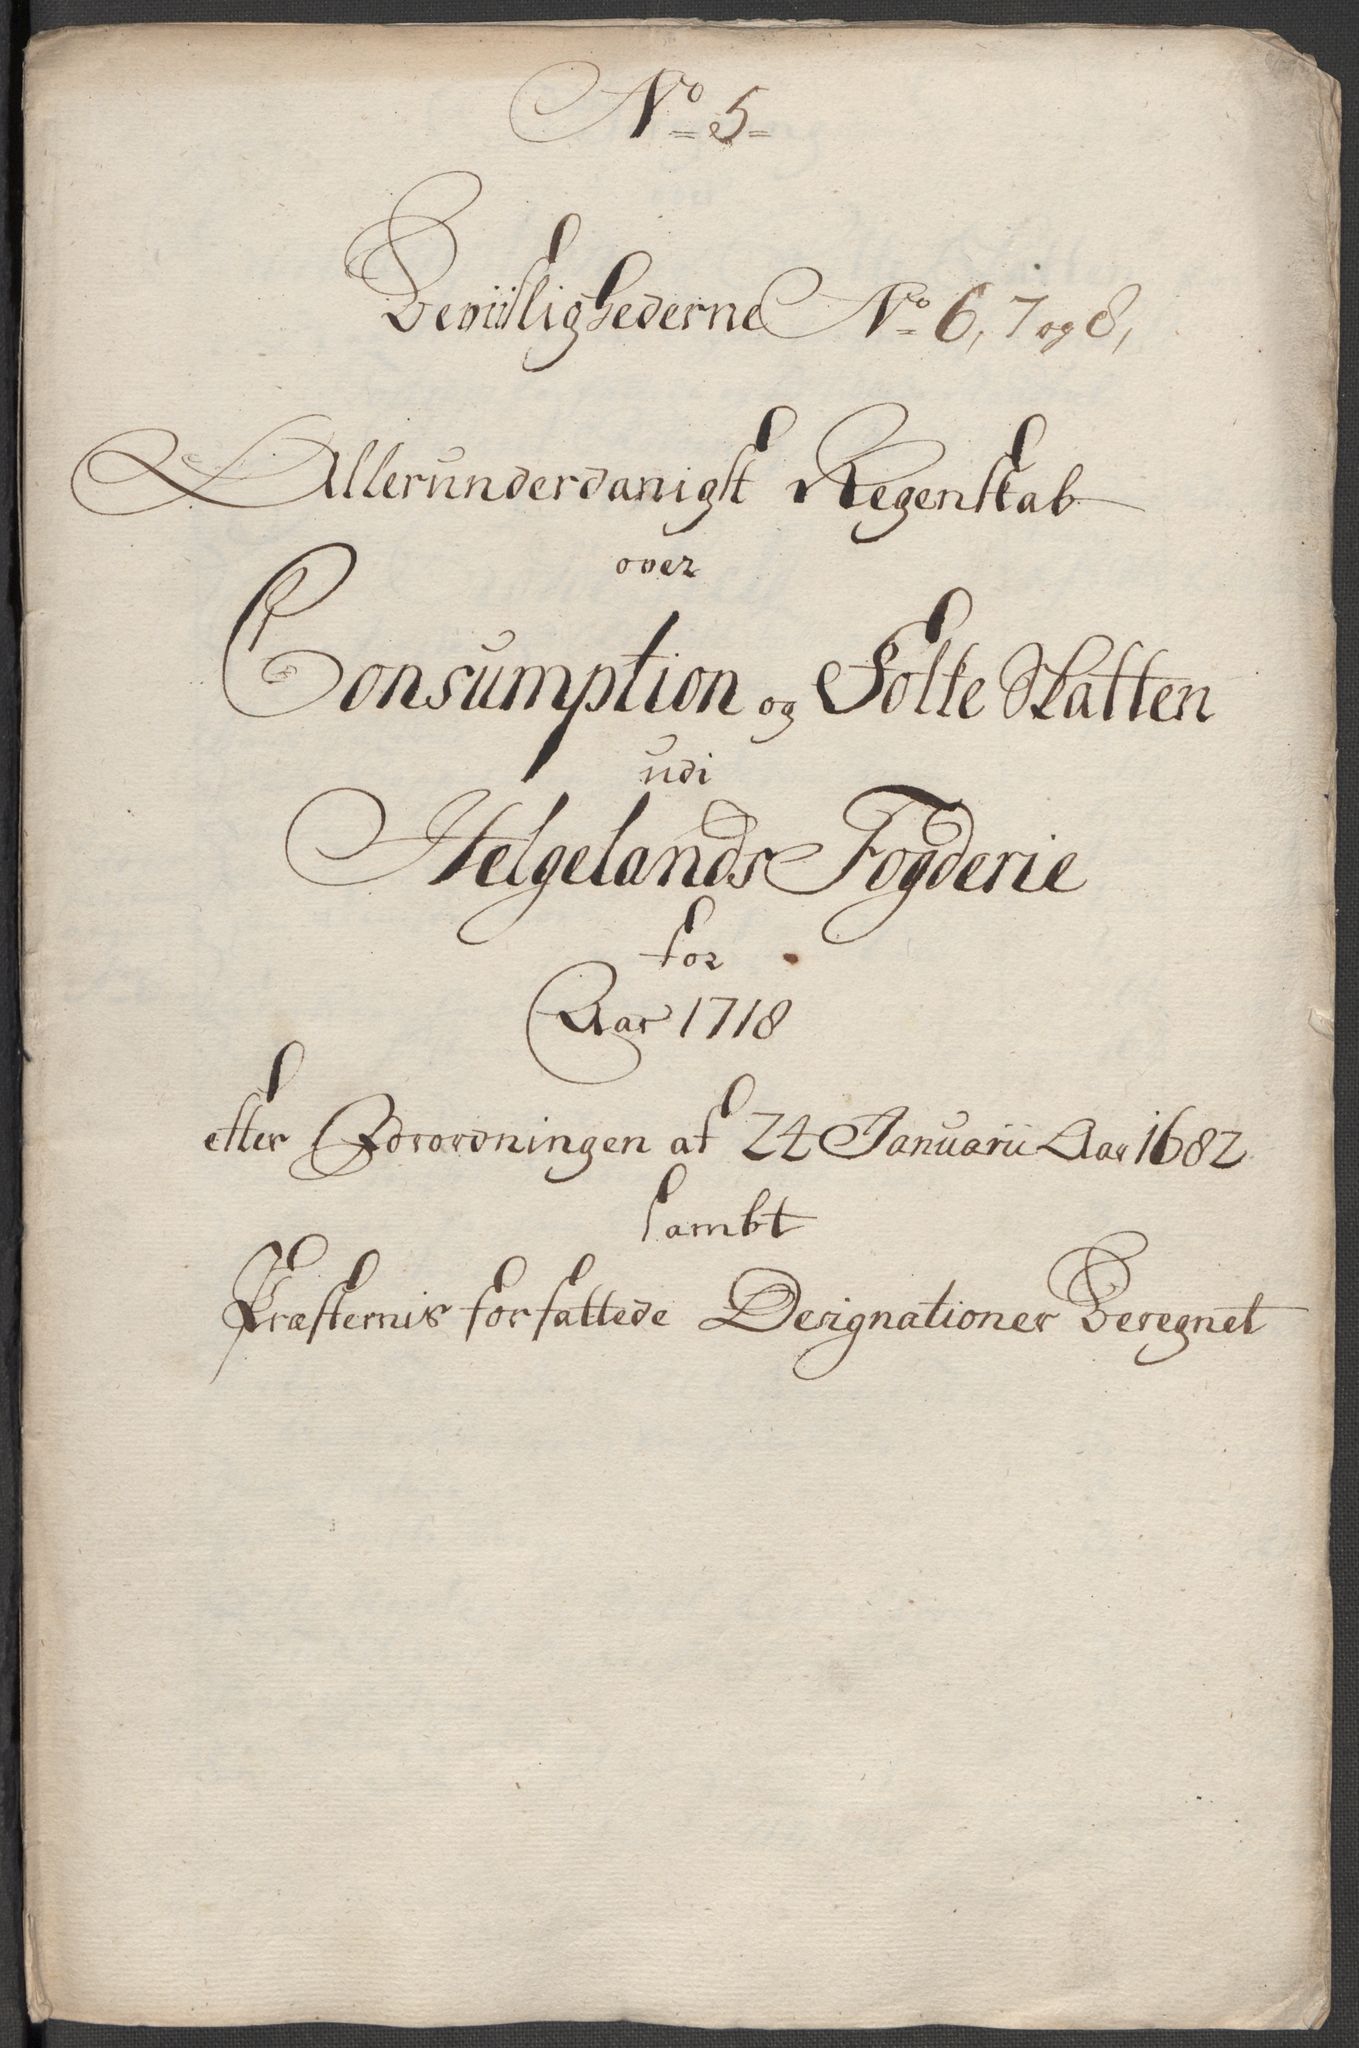 No 5
Beviisligheederne No 6, 7 og 8,
Allerunderdanigst Regenskab
over
Consumption og Folke Skatten
udi
Helgelands Fogderie
for
Aar 1718
efter Forordningen af 24 Januarii Aar 1682
sambt
Præsternis forfattede Designationer Beregnet